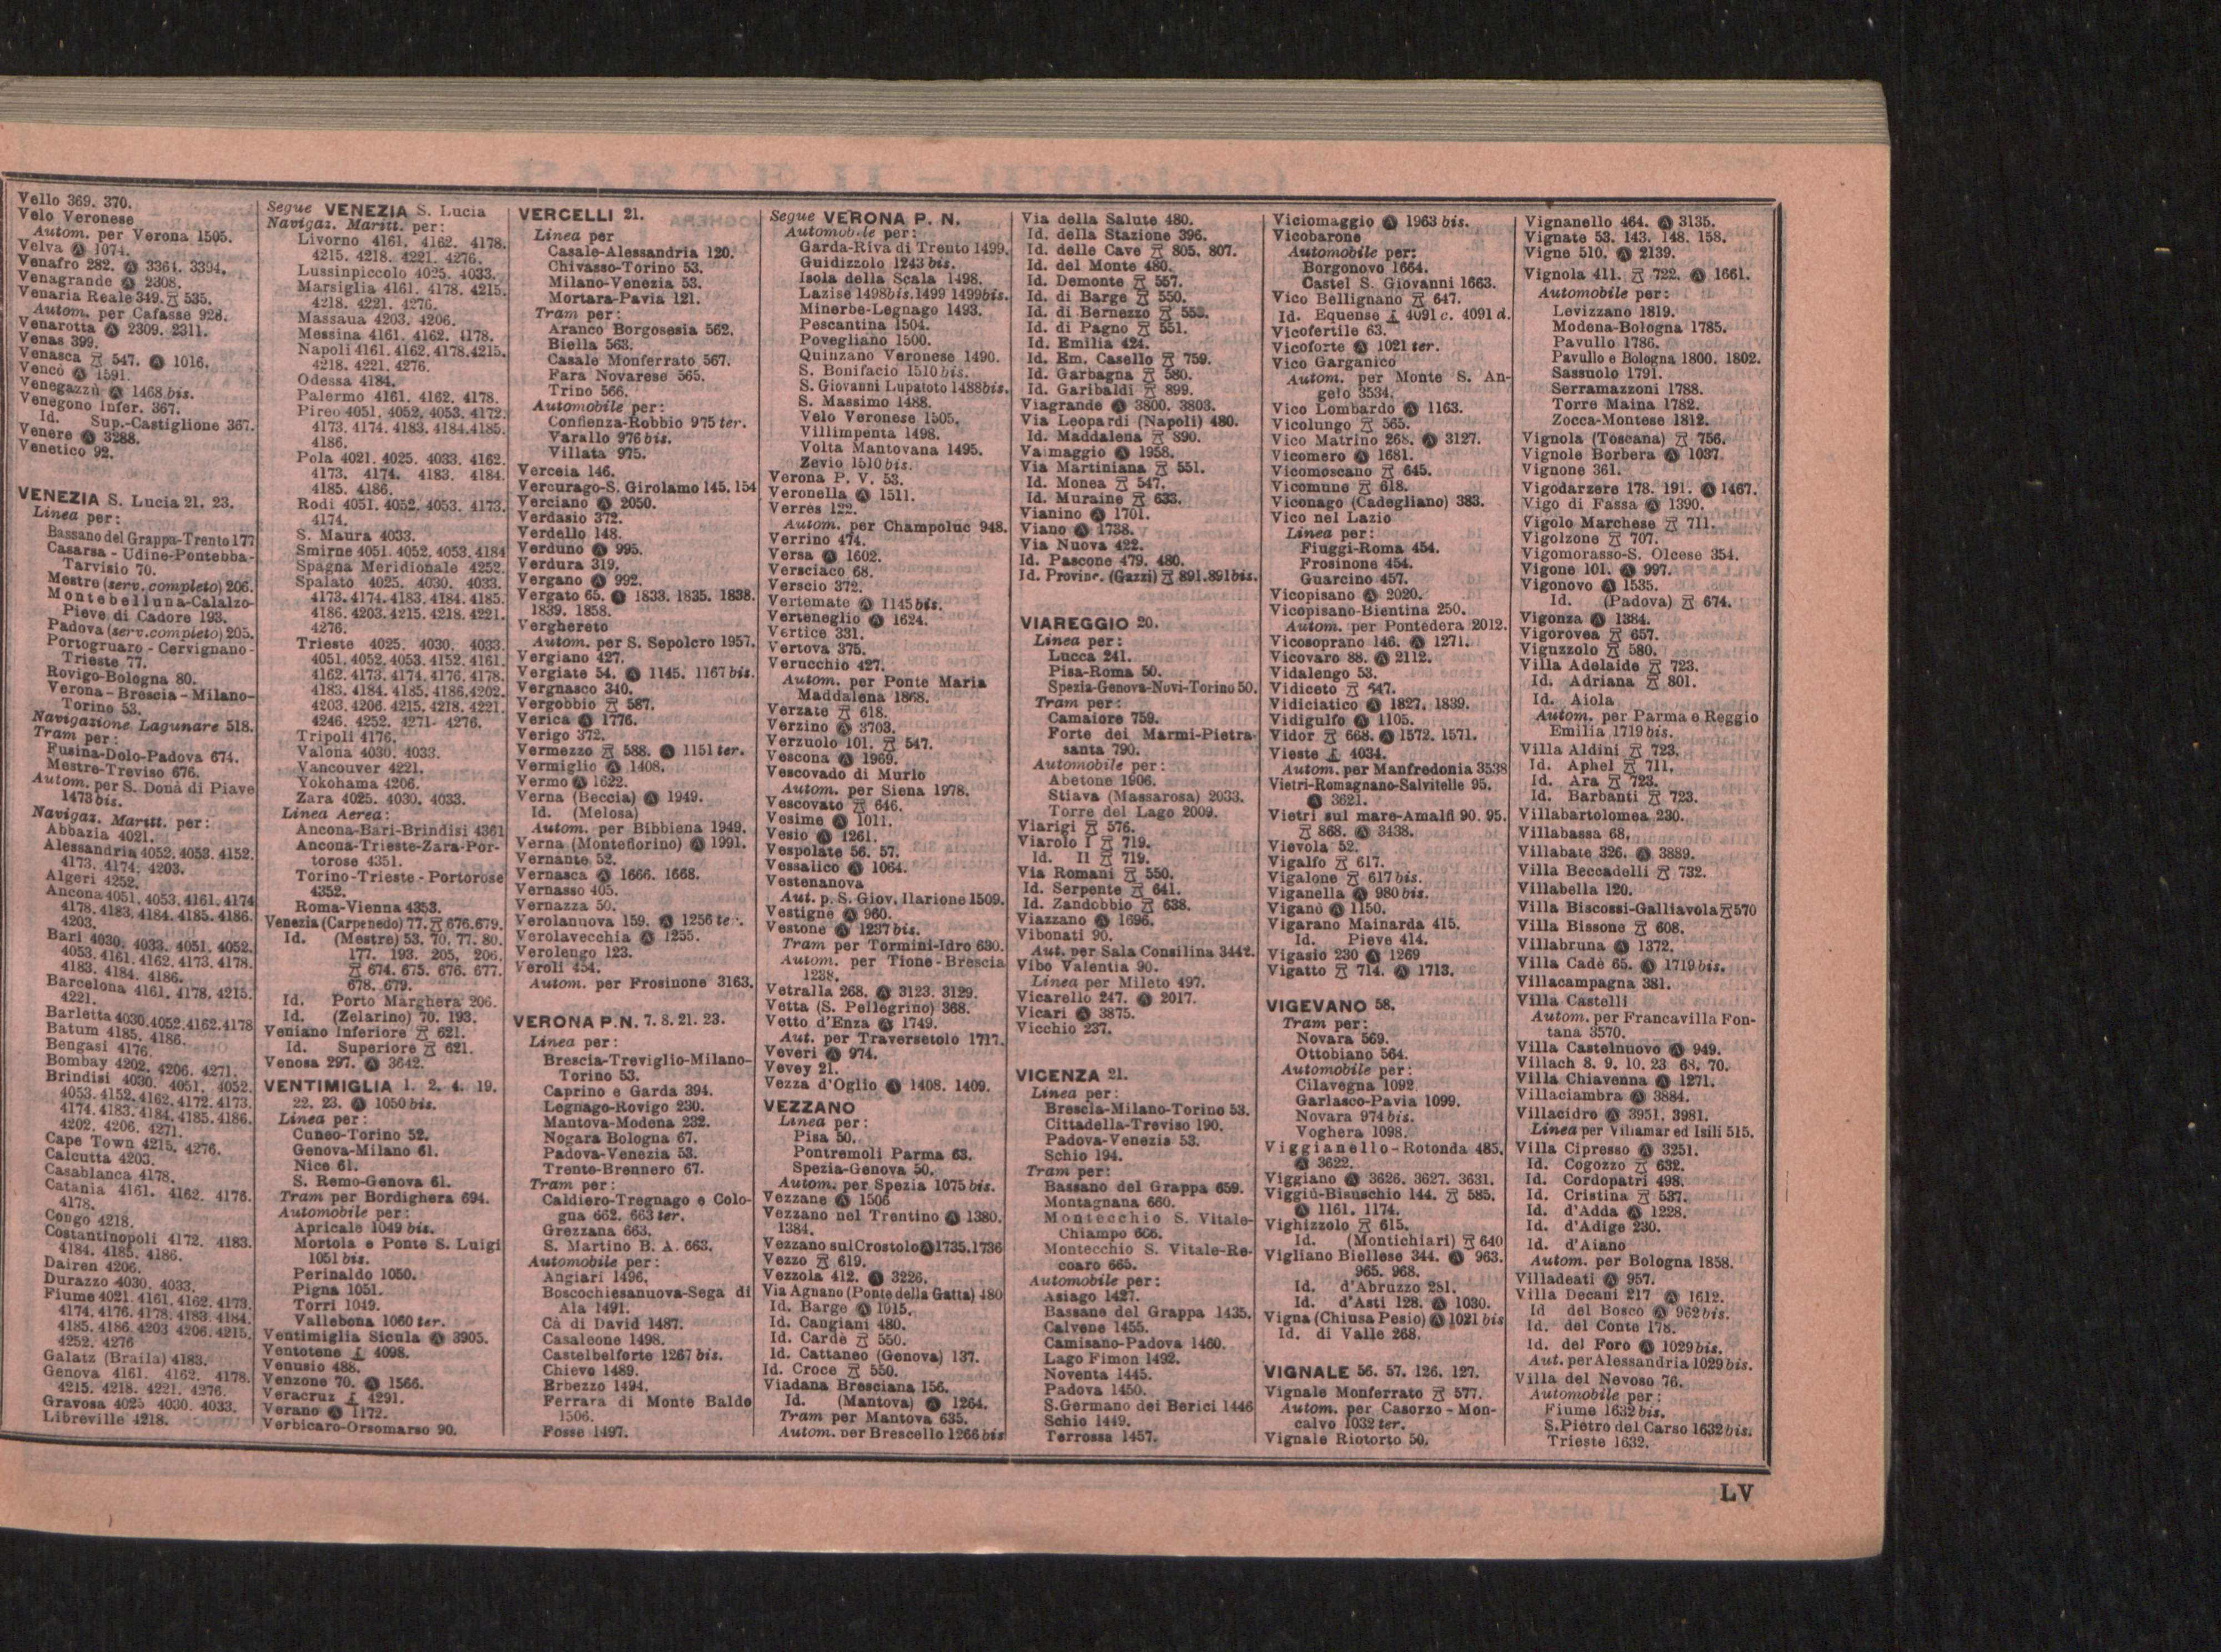 Vello 369. 370.
Velo Veronese
Autom. per Verona 1505.
Velva Ⓐ 1074.
Venafro 282. Ⓐ 3361. 3394.
Venagrande Ⓐ 2308.
Venaria Reale 349. 535.
Autom. per Cafasse 928.
Venarotta Ⓐ 2309. 2311.
Venas 399.
Venasca 547. Ⓐ 1016.
Vencò Ⓐ 1591.
Venegazzù Ⓐ 1468 bis.
Venegono Infer. 367.
Id. Sup.-Castiglione 367.
Venere Ⓐ 3288.
Venetico 92.
VENEZIA S. Lucia 21. 23.
Linea per:
Bassano del Grappa-Trento 177
Casarsa - Udine-Pontebba-
Tarvisio 70.
Mestre (serv. completo) 206.
Montebelluna-Calalzo-
Pieve di Cadore 193.
Padova (serv. completo) 205.
Portogruaro - Cervignano -
Trieste 77.
Rovigo-Bologna 80.
Verona - Brescia - Milano-
Torino 53.
Navigazione Lagunare 518.
Tram per:
Fusina-Dolo-Padova 674.
Mestre-Treviso 676.
Autom. per S. Donà di Piave
1473 bis.
Navigaz. Maritt. per:
Abbazia 4021.
Alessandria 4052. 4053. 4152.
4173. 4174. 4203.
Algeri 4252.
Ancona 4051. 4053. 4161. 4174
4178. 4183. 4184. 4185. 4186.
4203.
Bari 4030. 4033. 4051. 4052.
4053. 4161. 4162. 4173. 4178.
4183. 4184. 4186.
Barcelona 4161. 4178. 4215.
4221.
Barletta 4030. 4052. 4162. 4178
Batum 4185. 4186.
Bengasi 4176.
Bombay 4202. 4206. 4271.
Brindisi 4030. 4051. 4052.
4053. 4152. 4162. 4172. 4173.
4174. 4183. 4184. 4185. 4186.
4202. 4206. 4271.
Cape Town 4215. 4276.
Calcutta 4203.
Casablanca 4178.
Catania 4161. 4162. 4176.
4178.
Congo 4218.
Costantinopoli 4172. 4183.
4184. 4185. 4186.
Dairen 4206.
Durazzo 4030. 4033.
Fiume 4021. 4161. 4162. 4173.
4174. 4176. 4178. 4183. 4184.
4185. 4186. 4203 4206. 4215.
4252. 4276
Galatz (Braila) 4183.
Genova 4161. 4162. 4178.
4215. 4218. 4221. 4276.
Gravosa 4025 4030. 4033.
Libreville 4218.
Segue VENEZIA S. Lucia
Navigaz. Maritt. per:
Livorno 4161. 4162. 4178.
4215. 4218. 4221. 4276.
Lussinpiccolo 4025. 4033.
Marsiglia 4161. 4178. 4215.
4218. 4221. 4276.
Massaua 4203. 4206.
Messina 4161. 4162. 4178.
Napoli 4161. 4162. 4178. 4215.
4218. 4221. 4276.
Odessa 4184.
Palermo 4161. 4162. 4178.
Pireo 4051. 4052. 4053. 4172.
4173. 4174. 4183. 4184. 4185.
4186.
Pola 4021. 4025. 4033. 4162.
4173. 4174. 4183. 4184.
4185. 4186.
Rodi 4051. 4052. 4053. 4173.
4174.
S. Maura 4033.
Smirne 4051. 4052. 4053. 4184
Spagna Meridionale 4252.
Spalato 4025. 4030. 4033.
4173. 4174. 4183. 4184. 4185.
4186. 4203. 4215. 4218. 4221.
4276.
Trieste 4025. 4030. 4033.
4051. 4052. 4053. 4152. 4161.
4162. 4173. 4174. 4176. 4178.
4183. 4184. 4185. 4186. 4202.
4203. 4206. 4215. 4218. 4221.
4246. 4252. 4271- 4276.
Tripoli 4176.
Valona 4030. 4033.
Vancouver 4221.
Yokohama 4206.
Zara 4025. 4030. 4033.
Linea Aerea:
Ancona-Bari-Brindisi 4361
Ancona-Trieste-Zara-Por-
torose 4351.
Torino-Trieste - Portorose
4352.
Roma-Vienna 4353.
Venezia (Carpenedo) 77. 676. 679.
Id. (Mestre) 53. 70. 77. 80.
177. 193. 205. 206.
674. 675. 676. 677.
678. 679.
Id. Porto Marghera 206.
Id. (Zelarino) 70. 193.
Veniano Inferiore 621.
Id. Superiore 621.
Venosa 297. Ⓐ 3642.
VENTIMIGLIA 1. 2. 4. 19.
22. 23. Ⓐ 1050 bis.
Linea per:
Cuneo-Torino 52.
Genova-Milano 61.
Nice 61.
S. Remo-Genova 61.
Tram per Bordighera 694.
Automobile per:
Apricale 1049 bis.
Mortola e Ponte S. Luigi
1051 bis.
Perinaldo 1050.
Pigna 1051.
Torri 1049.
Vallebona 1060 ter.
Ventimiglia Sicula Ⓐ 3905.
Ventotene 4098.
Venusio 488.
Venzone 70. Ⓐ 1566.
Veracruz 4291.
Verano Ⓐ 1172.
Verbicaro-Orsomarso 90.
VERCELLI 21.
Linea per
Casale-Alessandria 120.
Chivasso-Torino 53.
Milano-Venezia 53.
Mortara-Pavia 121.
Tram per:
Aranco Borgosesia 562.
Biella 563.
Casale Monferrato 567.
Fara Novarese 565.
Trino 566.
Automobile per:
Confienza-Robbio 975 ter.
Varallo 976 bis.
Villata 975.
Verceia 146.
Vercurago-S. Girolamo 145. 154
Verciano Ⓐ 2050.
Verdasio 372.
Verdello 148.
Verduno Ⓐ 995.
Verdura 319.
Vergano Ⓐ 992.
Vergato 65. Ⓐ 1833. 1835. 1838.
1839. 1858.
Verghereto
Autom. per S. Sepolcro 1957.
Vergiano 427.
Vergiate 54. Ⓐ 1145. 1167 bis.
Vergnasco 340.
Vergobbio 587.
Verica Ⓐ 1776.
Verigo 372.
Vermezzo 588. Ⓐ 1151 ter.
Vermiglio Ⓐ 1408.
Vermo Ⓐ 1622.
Verna (Beccia) Ⓐ 1949.
Id. (Melosa)
Autom. per Bibbiena 1949.
Verna (Montefiorino) Ⓐ 1991.
Vernante 52.
Vernasca Ⓐ 1666. 1668.
Vernasso 405.
Vernazza 50.
Verolanuova 159. Ⓐ 1256
Verolavecchia Ⓐ 1255.
Verolengo 123.
Veroli 454.
Autom. per Frosinone 3163.
VERONA P.N. 7. 8. 21. 23.
Linea per:
Brescia-Treviglio-Milano-
Torino 53.
Caprino e Garda 394.
Legnago-Rovigo 230.
Mantova-Modena 232.
Nogara Bologna 67.
Padova-Venezia 53.
Trento-Brennero 67.
Tram per:
Caldiero-Tregnago e Colo-
gna 662. 663 ter.
Grezzana 663.
S. Martino B. A. 663.
Automobile per:
Angiari 1496.
Boscochiesanuova-Sega di
Ala 1491.
Cà di David 1487.
Casaleone 1498.
Castelbelforte 1267 bis.
Chievo 1489.
Erbezzo 1494.
Ferrara di Monte Baldo
1506.
Fosse 1497.
Segue VERONA P. N.
Automobile per:
Garda-Riva di Trento 1499.
Guidizzolo 1243 bis.
Isola della Scala 1498.
Lazise 1498bis. 1499 1499bis.
Minerbe-Legnago 1493.
Pescantina 1504.
Povegliano 1500.
Quinzano Veronese 1490.
S. Bonifacio 1510 bis.
S. Giovanni Lupatoto 1488bis.
S. Massimo 1488.
Velo Veronese 1505.
Villimpenta 1498.
Volta Mantovana 1495.
Zevio 1510 bis.
Verona P. V. 53.
Veronella Ⓐ 1511.
Verrès 122.
Autom. per Champoluc 948.
Verrino 474.
Versa Ⓐ 1602.
Versciaco 68.
Verscio 372.
Vertemate Ⓐ 1145 bis.
Verteneglio Ⓐ 1624.
Vertice 331.
Vertova 375.
Verucchio 427.
Autom. per Ponte Maria
Maddalena 1868.
Verzate 618.
Verzino Ⓐ 3703.
Verzuolo 101. 547.
Vescona Ⓐ 1969.
Vescovado di Murlo
Autom. per Siena 1978.
Vescovato 646.
Vesime Ⓐ 1011.
Vesio Ⓐ 1261.
Vespolate 56. 57.
Vessalico Ⓐ 1064.
Vestenanova
Aut. p. S. Giov. Ilarione 1509.
Vestignè Ⓐ 960.
Vestone Ⓐ 1237 bis.
Tram per Tormini-Idro 630.
Autom. per Tione - Brescia
1238.
Vetralla 268. Ⓐ 3123. 3129.
Vetta (S. Pellegrino) 368.
Vetto d'Enza Ⓐ 1749.
Aut. per Traversetolo 1717.
Veveri Ⓐ 974.
Vevey 21.
Vezza d'Oglio Ⓐ 1408. 1409.
VEZZANO
Linea per:
Pisa 50.
Pontremoli Parma 63.
Spezia-Genova 50.
Autom. per Spezia 1075 bis.
Vezzane Ⓐ 1506
Vezzano nel Trentino Ⓐ 1380.
1384.
Vezzano sul Crostolo Ⓐ 1735. 1736
Vezzo 619.
Vezzola 412. Ⓐ 3226.
Via Agnano (Ponte della Gatta) 480
Id. Barge Ⓐ 1015.
Id. Cangiani 480.
Id. Cardè 550.
Id. Cattaneo (Genova) 137.
Id. Croce 550.
Viadana Bresciana 156.
Id. (Mantova) Ⓐ 1264.
Tram per Mantova 635.
Autom. per Brescello 1266 bis
Via della Salute 480.
Id. della Stazione 396.
Id. delle Cave 805. 807.
Id. del Monte 480.
Id. Demonte 557.
Id. di Barge 550.
Id. di Bernezzo 553.
Id. di Pagno 551.
Id. Emilia 424.
Id. Em. Casello 759.
Id. Garbagna 580.
Id. Garibaldi 899.
Viagrande Ⓐ 3800. 3803.
Via Leopardi (Napoli) 480.
Id. Maddalena 890.
Vaimaggio Ⓐ 1958.
Via Martiniana 551.
Id. Monea 547.
Id. Muraine 633.
Vianino Ⓐ 1701.
Viano Ⓐ 1738.
Via Nuova 422.
Id. Pascone 479. 480.
Id. Provinc. (Gazzi) 891. 891bis.
VIAREGGIO 20.
Linea per:
Lucca 241.
Pisa-Roma 50.
Spezia-Genova-Novi-Torino 50.
Tram per:
Camaiore 759.
Forte dei Marmi-Pietra-
santa 790.
Automobile per:
Abetone 1906.
Stiava (Massarosa) 2033.
Torre del Lago 2009.
Viarigi 576.
Viarolo I 719.
Id. II 719.
Via Romani 550.
Id. Serpente 641.
Id. Zandobbio 638.
Viazzano Ⓐ 1696.
Vibonati 90.
Aut. per Sala Consilina 3442.
Vibo Valentia 90.
Linea per Mileto 497.
Vicarello 247. Ⓐ 2017.
Vicari Ⓐ 3875.
Vicchio 237.
VICENZA 21.
Linea per:
Brescia-Milano-Torino 53.
Cittadella-Treviso 190.
Padova-Venezia 53.
Schio 194.
Tram per:
Bassano del Grappa 659.
Montagnana 660.
Montecchio S. Vitale-
Chiampo 666.
Montecchio S. Vitale-Re-
coaro 665.
Automobile per:
Asiago 1427.
Bassano del Grappa 1435.
Calvene 1455.
Camisano-Padova 1460.
Lago Fimon 1492.
Noventa 1445.
Padova 1450.
S.Germano dei Berici 1446
Schio 1449.
Terrossa 1457.
Viciomaggio Ⓐ 1963 bis.
Vicobarone
Automobile per:
Borgonovo 1664.
Castel S. Giovanni 1663.
Vico Bellignano 647.
Id. Equense 4091 c. 4091 d.
Vicofertile 63.
Vicoforte Ⓐ 1021 ter.
Vico Garganico
Autom. per Monte S. An-
gelo 3534.
Vico Lombardo Ⓐ 1163.
Vicolungo 565.
Vico Matrino 268. Ⓐ 3127.
Vicomero Ⓐ 1681.
Vicomoscano 645.
Vicomune 618.
Viconago (Cadegliano) 383.
Vico nel Lazio
Linea per:
Fiuggi-Roma 454.
Frosinone 454.
Guarcino 457.
Vicopisano Ⓐ 2020.
Vicopisano-Bientina 250.
Autom. per Pontedera 2012.
Vicosoprano 146. Ⓐ 1271.
Vicovaro 88. Ⓐ 2112.
Vidalengo 53.
Vidiceto 647.
Vidiciatico Ⓐ 1827. 1839.
Vidigulfo Ⓐ 1105.
Vidor 668. Ⓐ 1572. 1571.
Vieste 4034.
Autom. per Manfredonia 3538
Vietri-Romagnano-Salvitelle 95.
Ⓐ 3621.
Vietri sul mare-Amalfi 90. 95.
868. Ⓐ 3438.
Vievola 52.
Vigalfo 617.
Vigalone 617 bis.
Viganella Ⓐ 980 bis.
Viganò Ⓐ 1150.
Vigarano Mainarda 415.
Id. Pieve 414.
Vigasio 230 Ⓐ 1269
Vigatto 714. Ⓐ 1713.
VIGEVANO 58.
Tram per:
Novara 569.
Ottobiano 564.
Automobile per:
Cilavegna 1092.
Garlasco-Pavia 1099.
Novara 974 bis.
Voghera 1098.
Viggianello-Rotonda 485.
Ⓐ 3622.
Viggiano Ⓐ 3626. 3627. 3631.
Viggiù-Bisuschio 144. 585.
Ⓐ 1161. 1174.
Vighizzolo 615.
Id. (Montichiari) 640
Vigliano Biellese 344. Ⓐ 963.
965. 968.
Id. d'Abruzzo 281.
Id. d'Asti 128. Ⓐ 1030.
Vigna (Chiusa Pesio) Ⓐ 1021 bis
Id. di Valle 268.
VIGNALE 56. 57. 126. 127.
Vignale Monferrato 577.
Autom. per Casorzo - Mon-
calvo 1032 ter.
Vignale Riotorto 50.
Vignanello 464. Ⓐ 3135.
Vignate 53. 143. 148. 158.
Vigne 510. Ⓐ 2139.
Vignola 411. 722. Ⓐ 1661.
Automobile per:
Levizzano 1819.
Modena-Bologna 1785.
Pavullo 1786.
Pavullo e Bologna 1800. 1802.
Sassuolo 1791.
Serramazzoni 1788.
Torre Maina 1782.
Zocca-Montese 1812.
Vignola (Toscana) 756.
Vignole Borbera Ⓐ 1037.
Vignone 361.
Vigodarzere 178. 191. Ⓐ 1467.
Vigo di Fassa Ⓐ 1390.
Vigolo Marchese 711.
Vigolzone 707.
Vigomorasso-S. Olcese 354.
Vigone 101. Ⓐ 997.
Vigonovo Ⓐ 1535.
Id. (Padova) 674.
Vigonza Ⓐ 1384.
Vigorovea 657.
Viguzzolo 580.
Villa Adelaide 723.
Id. Adriana 801.
Id. Aiola
Autom. per Parma e Reggio
Emilia 1719 bis.
Villa Aldini 723.
Id. Aphel 711.
Id. Ara 723.
Id. Barbanti 723.
Villabartolomea 230.
Villabassa 68.
Villabate 326. Ⓐ 3889.
Villa Beccadelli 732.
Villabella 120.
Villa Biscossi-Galliavola 570
Villa Bissone 608.
Villabruna Ⓐ 1372.
Villa Cadè 65. Ⓐ 1719 bis.
Villacampagna 381.
Villa Castelli
Autom. per Francavilla Fon-
tana 3570.
Villa Castelnuovo Ⓐ 949.
Villach 8. 9. 10. 23 68. 70.
Villa Chiavenna Ⓐ 1271.
Villaciambra Ⓐ 3884.
Villacidro Ⓐ 3951. 3981.
Linea per Villamar ed Isili 515.
Villa Cipresso Ⓐ 3251.
Id. Cogozzo 632.
Id. Cordopatri 498.
Id. Cristina 537.
Id. d'Adda Ⓐ 1228.
Id. d'Adige 230.
Id. d'Aiano
Autom. per Bologna 1858.
Villadeati Ⓐ 957.
Villa Decani 217 Ⓐ 1612.
Id del Bosco Ⓐ 962 bis.
Id. del Conte 178.
Id. del Foro Ⓐ 1029 bis.
Aut. per Alessandria 1029 bis.
Villa del Nevoso 76.
Automobile per:
Fiume 1632 bis.
S.Pietro del Carso 1632 bis.
Trieste 1632.
LV